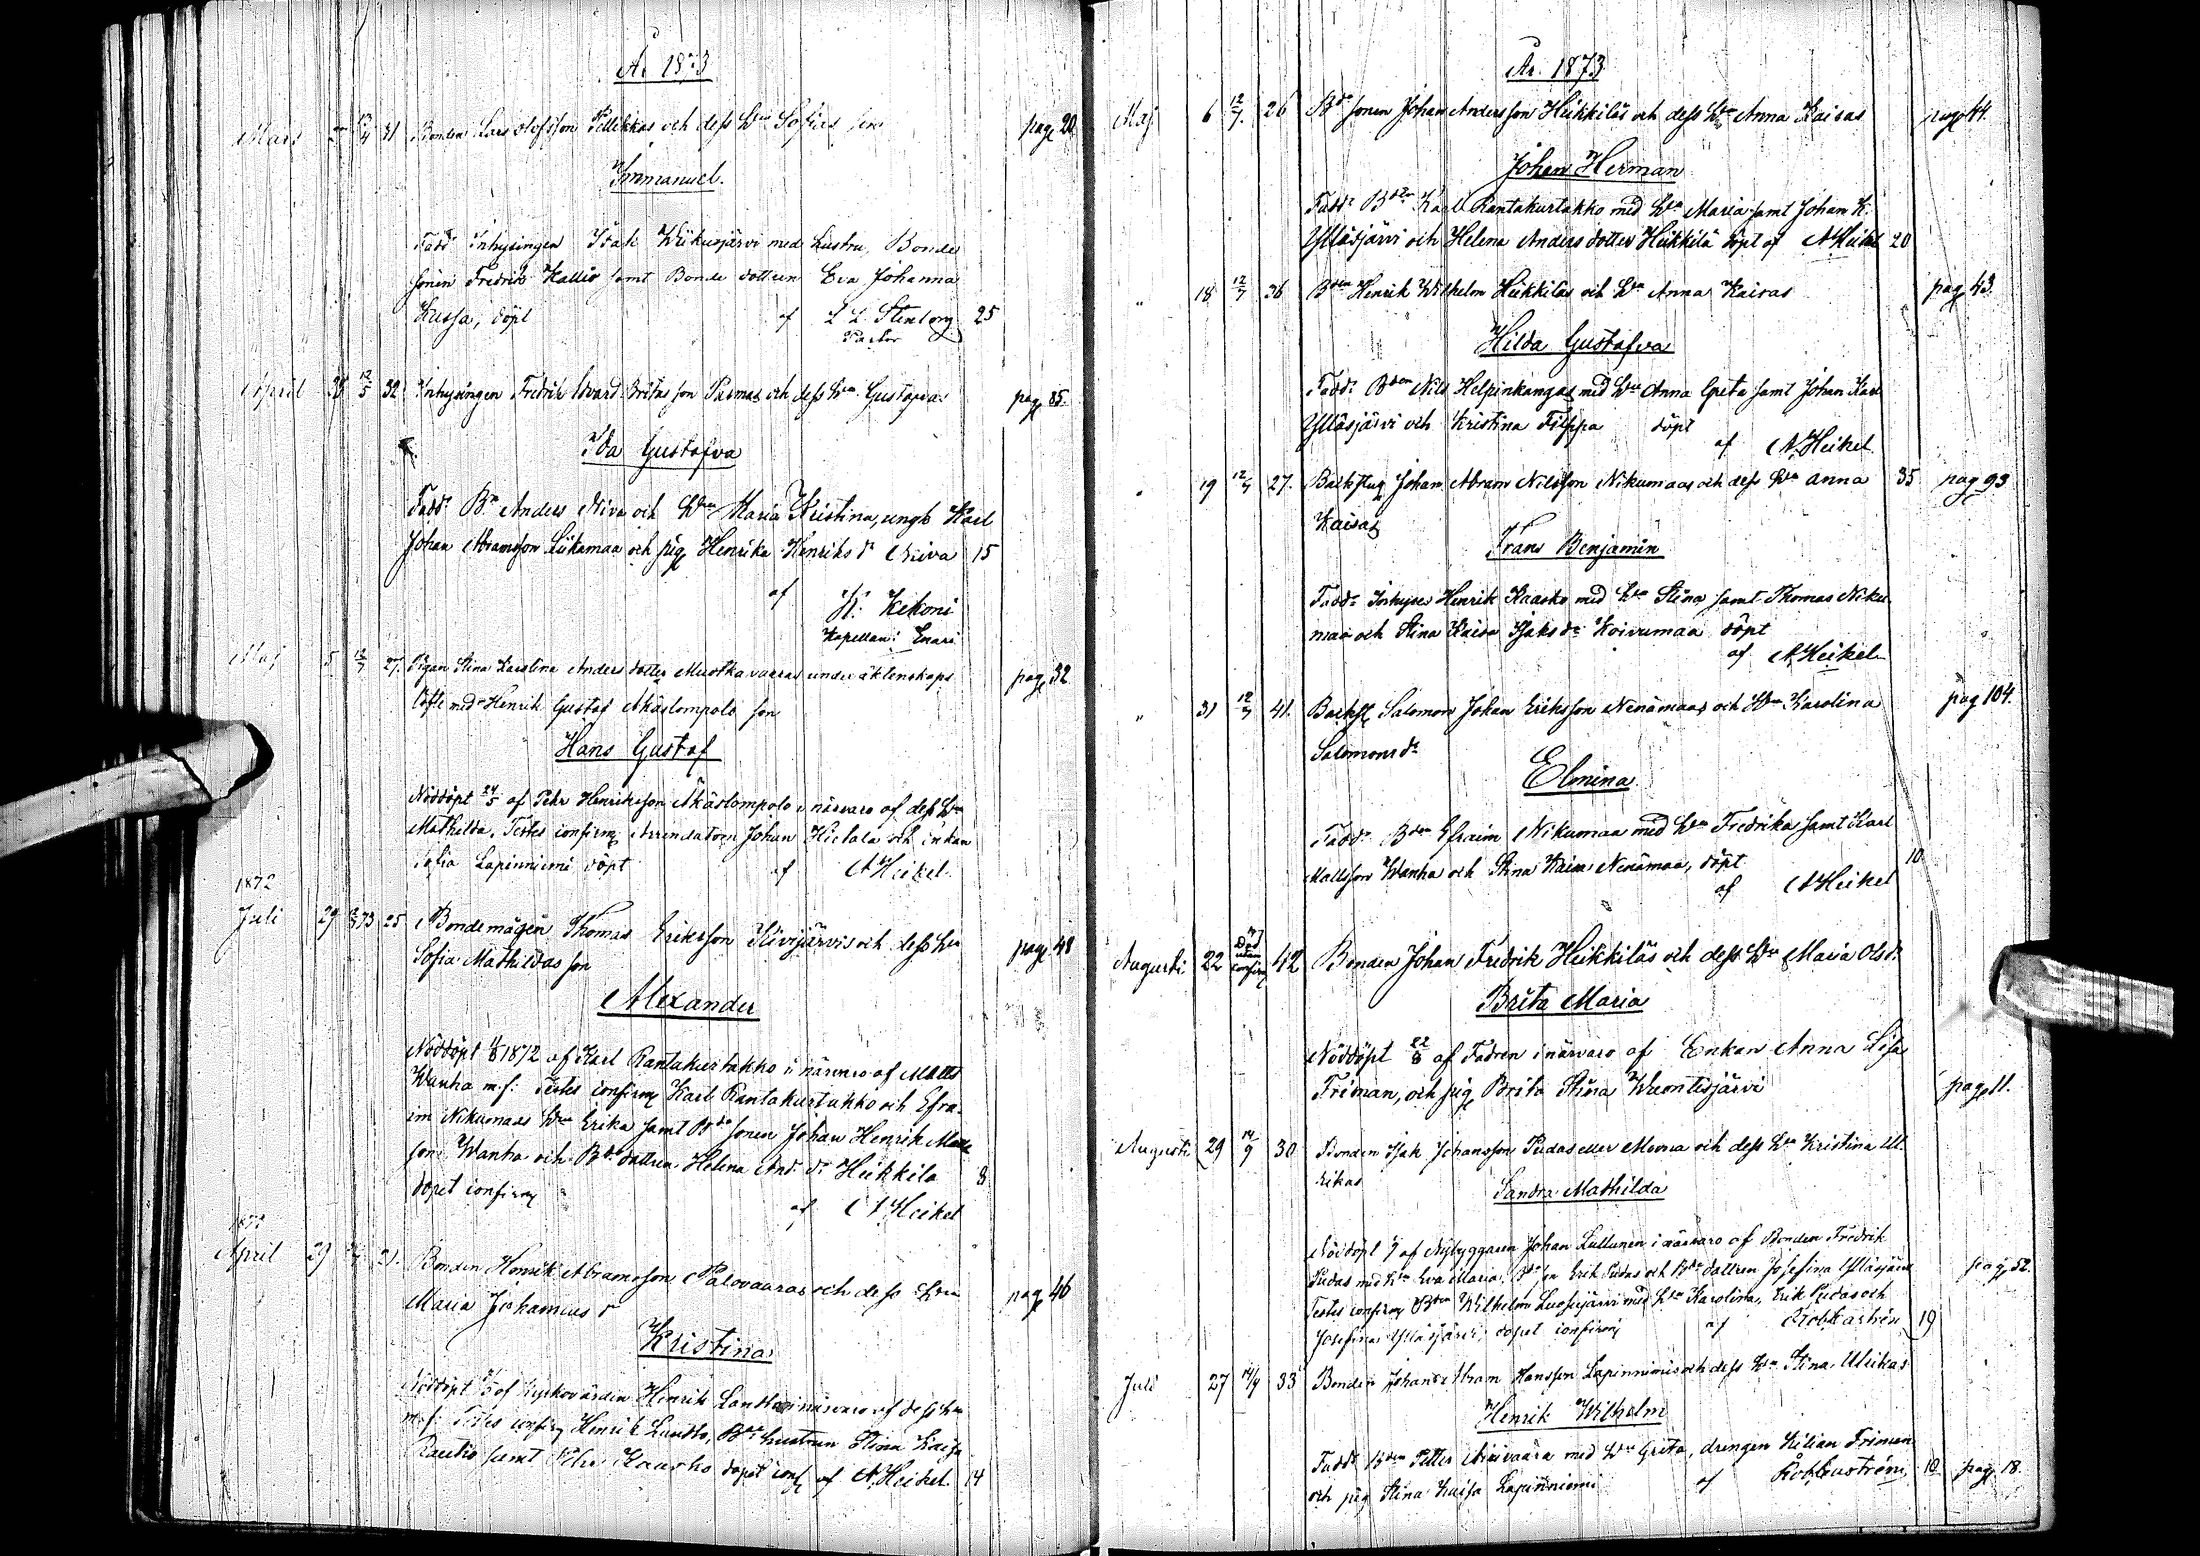 År 1873
Mars 31 Bonden Lars Olofsson Pellikkas och dess Hru Sofias son pag 20
Immanuel.
Fadd. Inhysingen Isak Wiikusjärvi med hustru, Bonde
sonen Fredrik Kallio samt Bonde dottren Eva Johanna
Kussa, döpt af L L Stenborg 25
Pastor
April 28 12/5 32 Inhysingen Fredrik Edvard Britas son Parmas och dess Hru Gustafvas pag 85.
Ida Gustafva
Fadd. Bn Anders Niva och Hrn Maria Kristina, ungk Karl
Johan Abramsson Liikamaa och pig Henrika Henriks dr Niva 15
af K. Kekoni
Kapellan i Enari
Maj 5 12/7 27. Pigan Stina Karolina Anders dotter Mustkavaaras under äktenskaps pag 32
löfte med Henrik Gustaf Äkäslompolo son
Hans Gustaf
Nöddöpt 24/5 af Petr Henriksson Äkäslompolo i närvaro af dess Hru
Mathilda. Testes confirm Arrendatorn Johan Hietala och enkan
Sofia Lapinniemi döpt af A Heikel.
1872
Juli 29 73 25 Bondemågen Thomas Eriksson Kivijärvis och dess Hru pag 48
Sofia Mathildas son
Alexander
Nöddöpt 1872 af Karl Rantakurtakko i närvaro af Matts
Wanha m.fl. Testes confirm Karl Rantakurtakko och Efra-
im Nikumaas Hru Erika samt Bde sonen Johan Henrik Matts
son Wanha och Bde dottren Helena And. dr Heikkilä 8
dopet confirm af A Heikel
1873
April 29 21. Bonden Henrik Abramsson Palovaaras och dess Hru pag 46
Maria Johannas dr
Kristina
Nöddöpt af Kyrkovärden Henrik Lantto i närvaro af dess hru
m.fl. Testes confirm Henrik Lantto, Bde hustrun Stina Kaisa
Rautio samt Kaarko dopet conf af A. Heikel. 14
År. 1873
Maj 6 12/7 26 Bde sonen Johan Andersson Heikkiläs och dess Hru Anna Kaisas pag 44.
Johan Herman
Fadd. Bden Karl Rantakurtakko med Hru Maria samt Johan K.
Ylläsjärvi och Helena Anders dotter Heikkilä döpt af A Heikel 20
" 18 12/7 36 Bden Henrik Wilhelm Heikkiläs och Hru Anna Kaisas pag 43
Hilda Gustafva
Fadd. Bden Nils Helpinkangas med Hru Anna Greta samt Johan Karl
Ylläsjärvi och Kristina Filppa döpt
af A. Heikel
" 19 12/7 27. Backstug Johan Abram Nilsson Nikumaas och dess Hru Anna 35 pag 93
Kaisas
Frans Benjamin
Fadd. Inhyses Henrik Kaarko med Hru Stina samt Thomas Niku-
maa och Stina Kaisa Isaks dr Koivumaa döpt
af A. Heikel
" 31 12/7 41. Backst Salomon Johan Eriksson Nenämaas och Hru Karolina pag 104.
Salomons dr
Elmina
Fadd. Bden Efraim Nikumaa med Hru Fredrika samt Karl
Mattsson Wanha och Stina Kaisa Nenämaa, döpt 10
af A Heikel
Augusti 22 död utan confirm 42 Bonden Johan Fredrik Heikkiläs och dess Hru Maria Ols dr
Brita Maria
Nöddöpt 22/8 af Fadren i närvaro af Enkan Anna Lisa
Friman, och pig Brita Stina Wuontisjärvi pag 11.
Augusti 29 14/9 30 Bonden Isak Johansson Pudas eller Morra och dess Hru Kristina Ul-
rikas
Sandra Mathilda
Nöddöpt af Nybyggaren Johan Lullunen i närvaro af Bonden Fredrik
Pudas med Hru Eva Maria, Erik Pudas och Bde dottren Josefina Ylläsjärvi pag 52.
Testes confirm Bden Wilhelm Luosujärvi med Hru Karolina, Erik Pudas och
Josefina Ylläsjärvi, dopet confirm af 19
Juli 27 14/9 33 Bonden Johan Abram Hansson Lapinniemis och dess Hru Stina Ulrikas
Henrik Wilhelm
Fadd. Bden Petter Niskavaara med Hru Greta, drengen Kilian Friman
och pig Stina Kaisa Lapinniemi af 10 pag. 18.